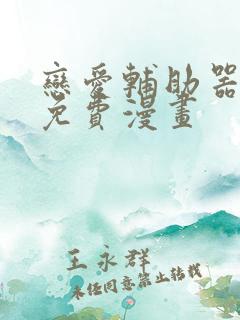 戀愛輔助器
免費漫畫
王永群
未經同意禁止轉載